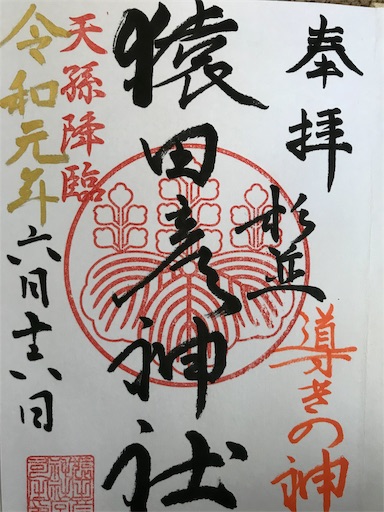 奉拝
杉並
導きの神
猿田彦神社
天孫降臨
令和元年
六月十八日